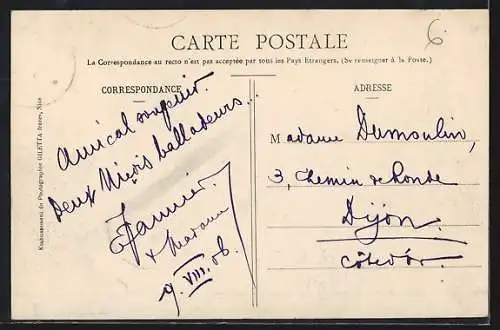 6
CARTE POSTALE
La Correspondance au recto n'est pas acceptée par tous les Pays Étrangers. (Se renseigner à la Poste.)
CORRESPONDANCE
Amical souvenir
Deux Niçois balladeurs...
& Madame
9. VIII. 08.
ADRESSE
Madame Dumoulin,
3, Chemin de Ronde
Dijon.
Côte d'Or.
Etablissement de Photographie GILETTA frères, Nice